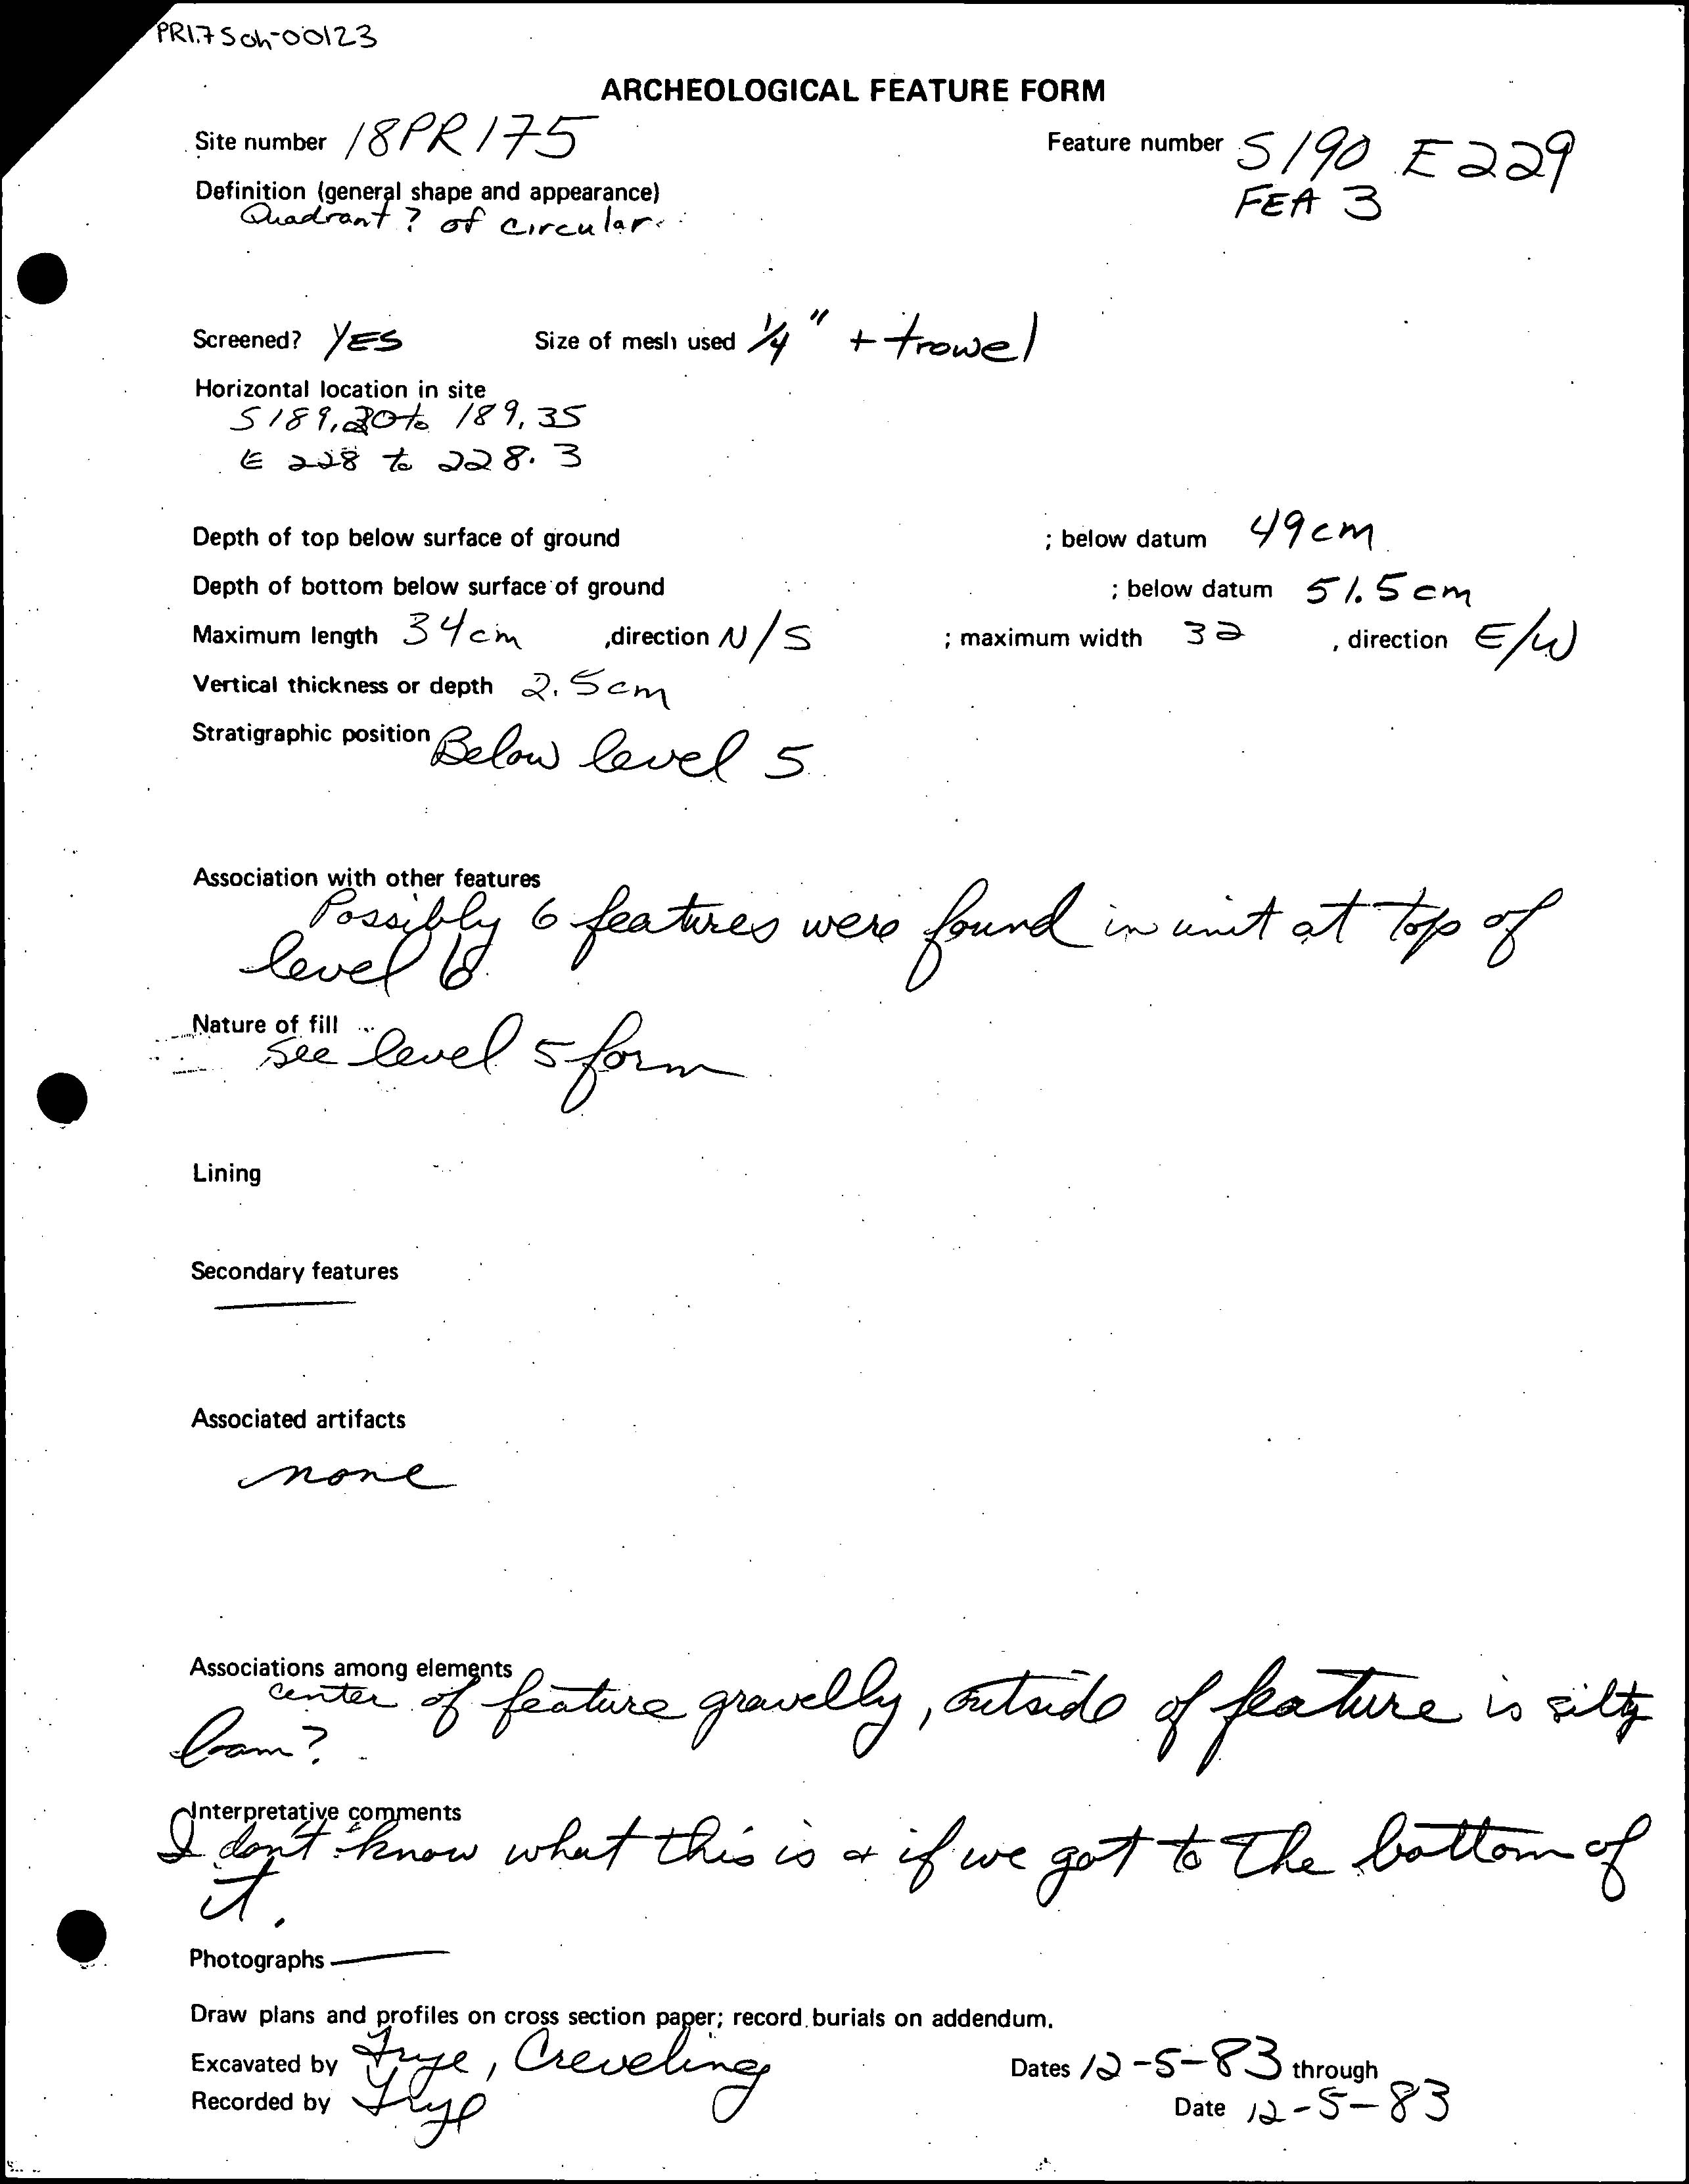 PR175ch-00123
ARCHEOLOGICAL FEATURE FORM
Site number 18PR175 Feature number S190 E229
FEA 3
Definition (general shape and appearance)
Quadrant? of circular.
Screened? YES Size of mesh used 1/4" + trowel
Horizontal location in site
S189.20 to 189.35
E 228 to 228.3
Depth of top below surface of ground ; below datum 49cm
Depth of bottom below surface of ground ; below datum 51.5cm
Maximum length 34cm ,direction N/S ; maximum width 32 , direction E/W
Vertical thickness or depth 2.5cm
Stratigraphic position Below level 5
Association with other features
Possibly 6 features were found in unit at top of
level 6.
Nature of fill
See level 5 form
Lining
Secondary features
Associated artifacts
none
Associations among elements
center of feature gravelly, outside of feature is silty
loam?
Interpretative comments
I don't know what this is + if we got to the bottom of
it.
Photographs —
Draw plans and profiles on cross section paper; record burials on addendum.
Excavated by Frye, Creveling Dates 12-5-83 through
Recorded by Frye Date 12-5-83